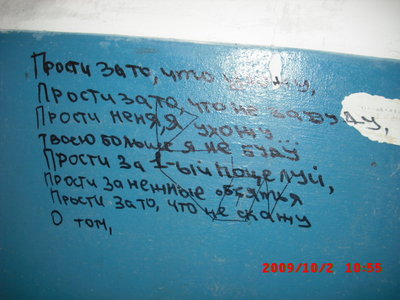 Прости за то, что ухожу,
Прости за то, что не забуду,
Прости меня, я ухожу
Твоею больше я не буду
Прости за 1-ый поцелуй,
Прости за нежные обятия
Прости за то, что не скажу
О том,
2009/10/2 10:55